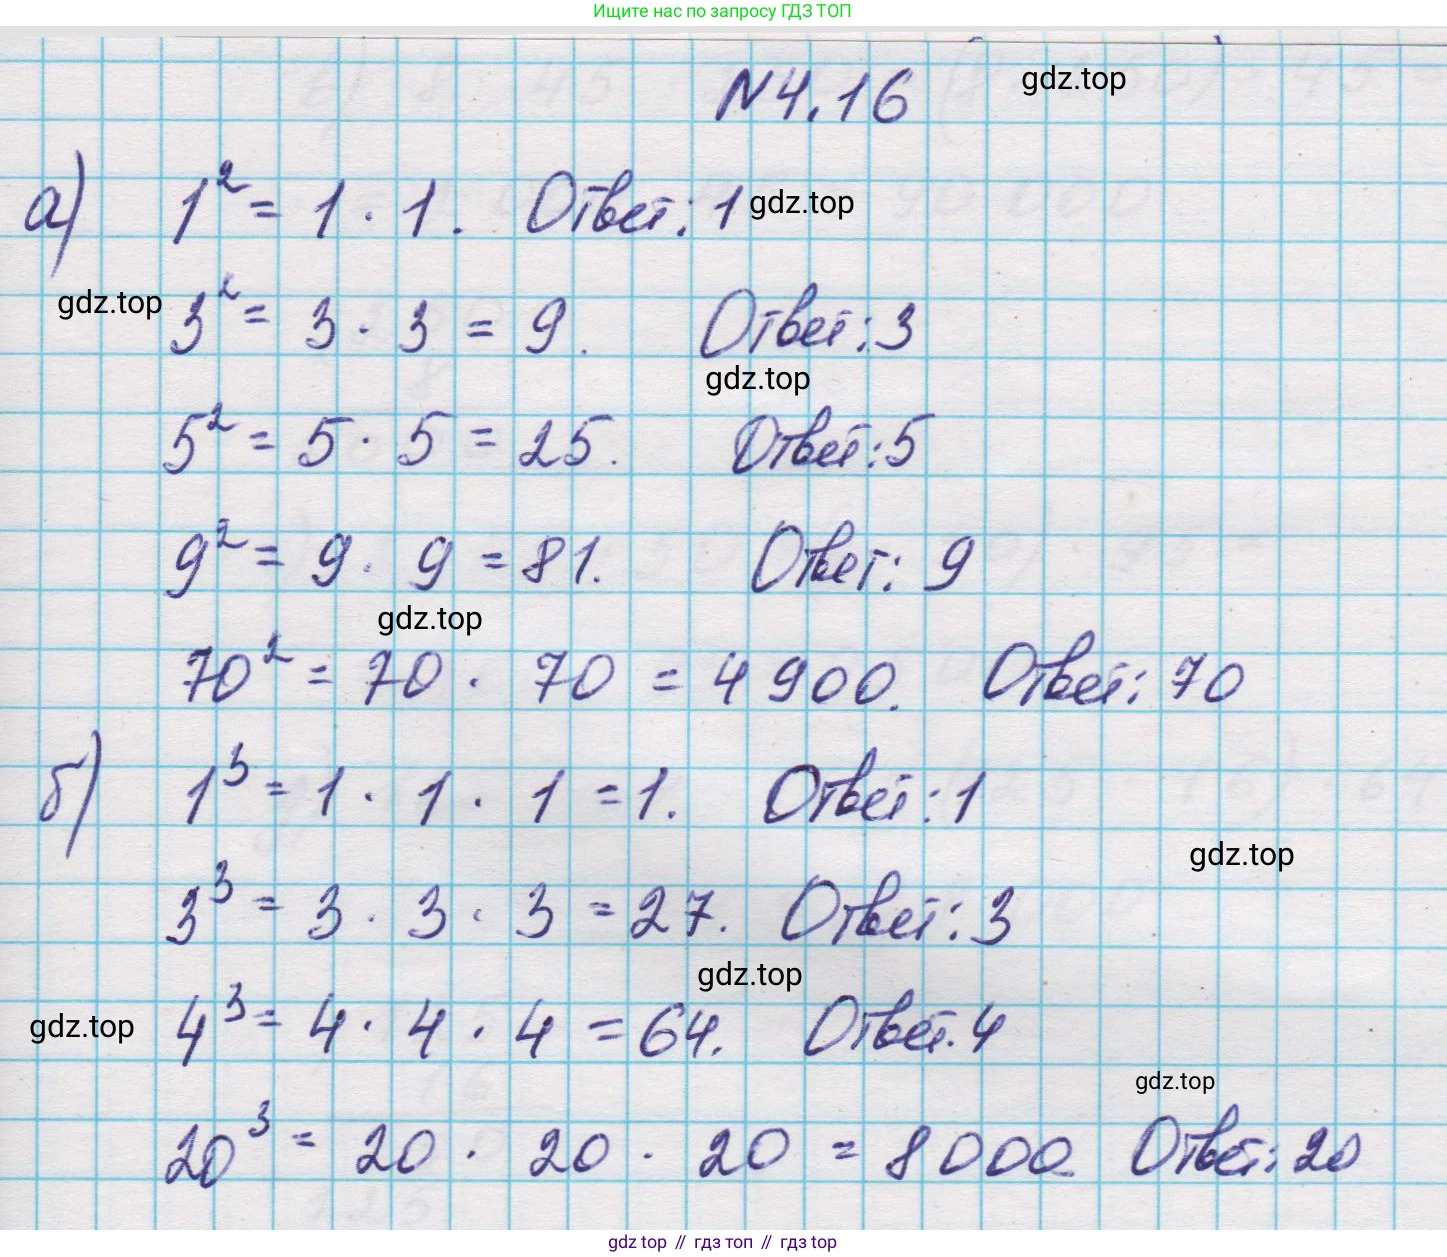 Ищите нас по запросу ГДЗ ТОП
N4.16 gdz.top
а) 1² = 1 · 1. Ответ: 1 gdz.top
gdz.top 3² = 3 · 3 = 9. Ответ: 3
gdz.top
5² = 5 · 5 = 25. Ответ: 5
9² = 9 · 9 = 81. Ответ: 9
gdz.top
70² = 70 · 70 = 4 900. Ответ: 70
б) 1³ = 1 · 1 · 1 = 1. Ответ: 1
gdz.top
3³ = 3 · 3 · 3 = 27. Ответ: 3
gdz.top
gdz.top 4³ = 4 · 4 · 4 = 64. Ответ. 4
gdz.top
20³ = 20 · 20 · 20 = 8000 Ответ: 20
gdz top // гдз топ // гдз top